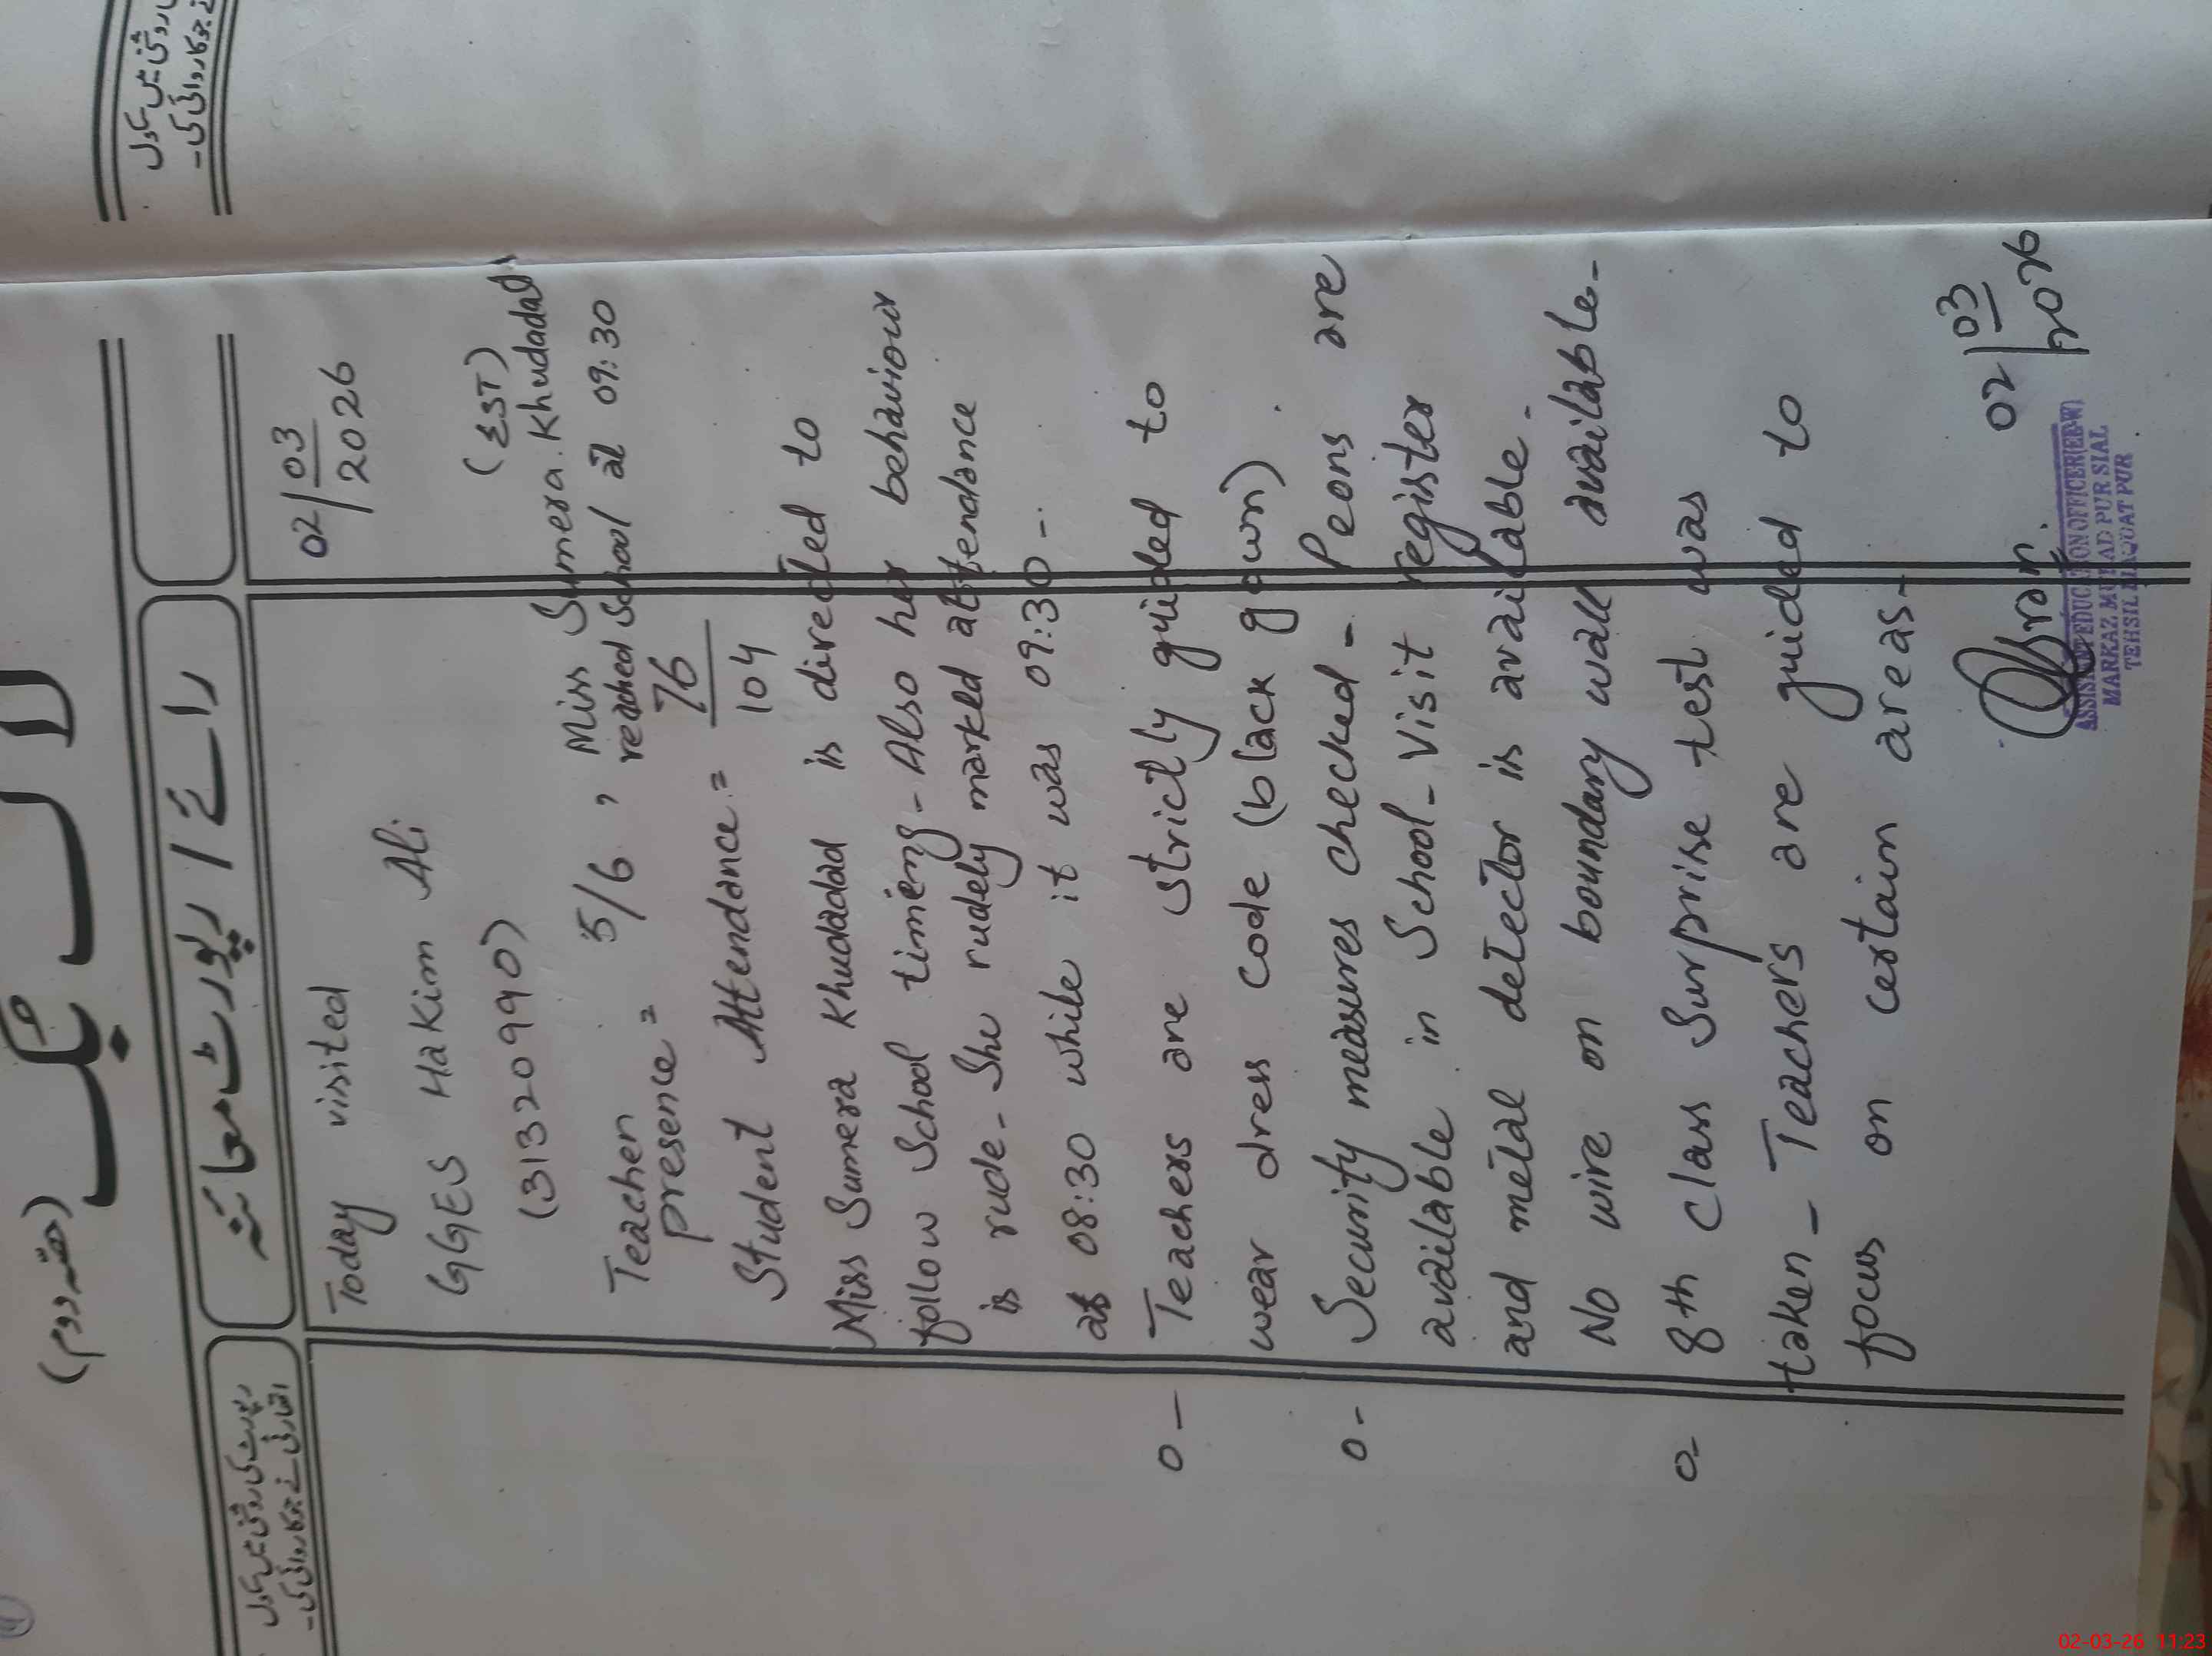 (حصّہ دوم)
لاگ بک
رائے / رپورٹ معائنہ
رپورٹ کی روشنی میں سکول
نے جو کاروائی کی۔
02/03/2026
Today visited
GGES Hakim Ali
(31320990)
(EST)
Teacher presence = 5/6 , Miss Sumera Khudadad
reached School at 09:30
Student Attendance = 76/104
Miss Sumera Khudadad is directed to
follow School timing - Also her behaviour
is rude - She rudely marked attendance
at 08:30 while it was 09:30 -
0 - Teachers are strictly guided to
wear dress code (black gown) .
0 - Security measures checked - Peons are
available in School - Visit register
and metal detector is available -
No wire on boundary wall available -
0- 8th class Surprise test was
taken - Teachers are guided to
focus on certain areas -
02/03/2026
MARKAZ MURAD PUR SIAL
TEHSIL LIAQAT PUR
روشنی میں سکول
نے جو کاروائی کی۔
02-03-26 11:23